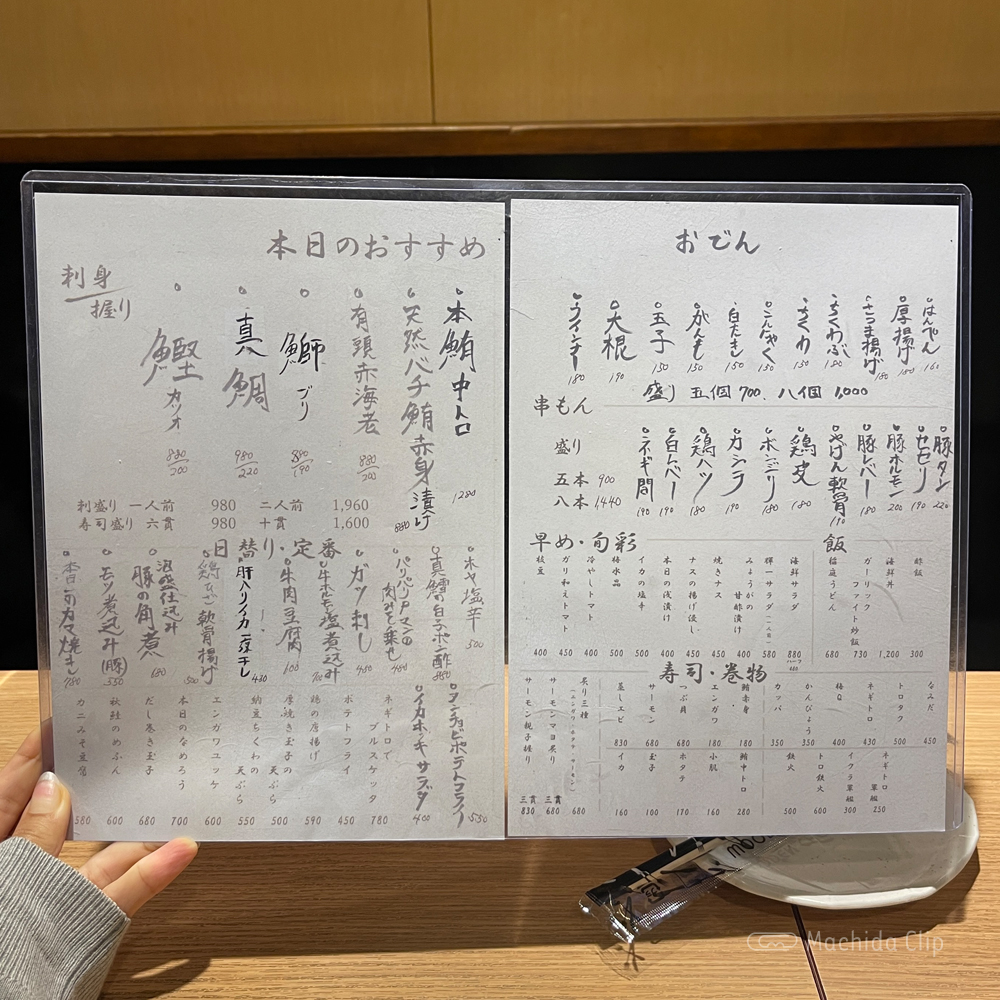 本日のおすすめ
刺身
握り
本鮪中トロ 1280
天然バチ鮪赤身漬け 880
有頭赤海老 880/200
鰤 ブリ 890/190
真鯛 980/220
鰹 カツオ 880/200
刺盛り 一人前 980 二人前 1,960
寿司盛り 六貫 980 十貫 1,600
日替り・定番
ホヤ塩辛 500
真鱈の白子ポン酢 880
パリパリピーマンの肉みそ乗せ 480
ガツ刺し 450
牛ホルモン塩煮込み 700
牛肉豆腐 600
肝入りイカ一夜干し 430
鶏ひざ軟骨揚げ 500
泡盛仕込み豚の角煮 680
モツ煮込み(豚) 550
本日のカマ焼き 780
アンチョビポテトフライ 550
イカホッキサラダ 400
ネギトロでブルスケッタ 780
ポテトフライ 450
鶏の唐揚げ 590
厚焼き玉子の天ぷら 500
納豆ちくわの天ぷら 550
エンガワユッケ 600
本日のなめろう 700
だし巻き玉子 680
秋鮭のめふん 600
カニみそ豆腐 580
おでん
はんぺん 160
厚揚げ 180
さつま揚げ 180
ちくわぶ 180
ちくわ 150
こんにゃく 150
白たき 150
がんも 150
玉子 150
大根 190
ウインナー 180
盛り 五個 700、八個 1,000
串もん
盛り
五本 900
八本 1,440
豚タン 220
セセリ 190
豚ホルモン 200
豚レバー 180
やげん軟骨 190
鶏皮 180
ボンジリ 190
カシラ 190
鶏ハツ 180
白レバー 190
ネギ間 190
早め・旬彩
枝豆 400
ガリ和えトマト 450
冷やしトマト 400
梅水晶 500
イカの塩辛 500
本日の浅漬け 400
ナスの揚げ浸し 500
焼きナス 500
みょうがの甘酢漬け 500
輝サラダ(一人前) 580
海鮮サラダ 880
ハーフ
飯
稲庭うどん 680
ガーリックツナファイト炒飯 730
海鮮丼 1,200
酢飯 300
寿司・巻物
なみだ 450
トロタク 500
ネギトロ 430
梅Q 400
かんぴょう 350
カッパ 350
鮪赤身 180
エンガワ 180
つぶ貝 680
サーモン 680
蒸しエビ 830
ネギトロ軍艦 250
イクラ軍艦 300
トロ鉄火 600
鉄火 500
鮪中トロ 280
小肌 160
ホタテ 170
玉子 100
イカ 160
炙り三種
(エンガワ・ホタテ・サーモン) 680
サーモンマヨ炙り 三貫 680
サーモン親子握り 三貫 830
Machida Clip